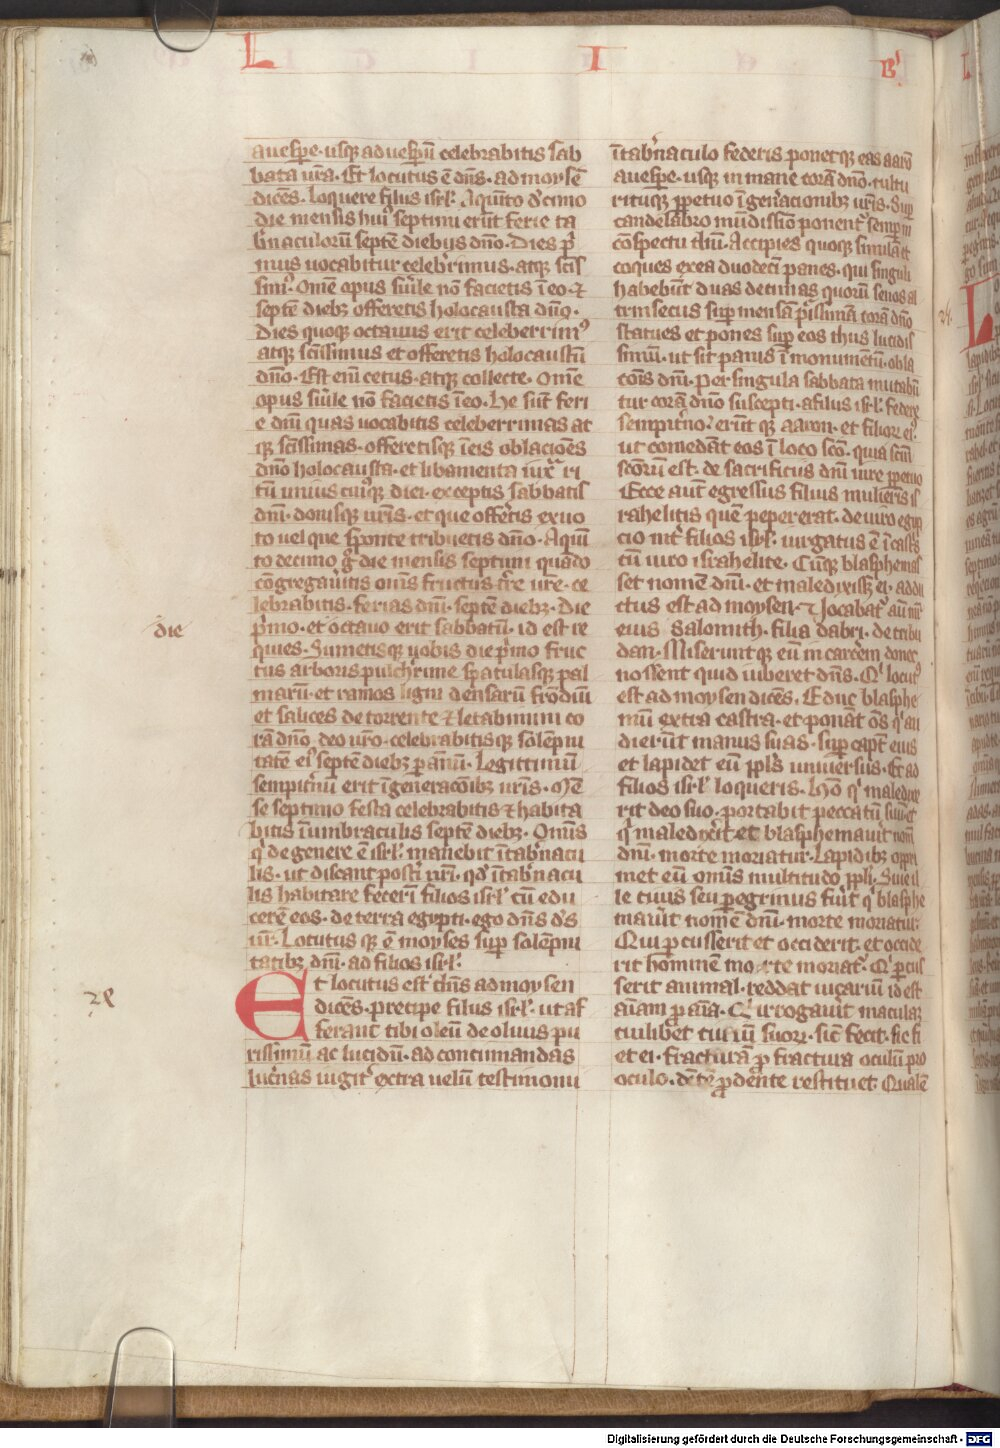 L I B'
auesp̄e · usq̢ ad uesp̄ū celebrabitis sab
bata ur̄a. Et locutus ē dn̄s · ad moysē
dicēs. loquere filijs isr̄l. A quīto d'cimo
die mensis hui' septimi erūt ferie ta
b̄naculorū septē diebus dn̄o. Dies p̄
mus uocabitur celeb̄rimus · atq̢ scīs
sim'. Omē opus s̄uile nō facietis ī eo · ⁊
septē dieb̢ offeretis holocausta dn̄o.
Dies quoq̢ octauus erit celeberrim'
atq̢ scīssimus et offeretis holocaustū
dn̄o. Est eni cetus · atq̢ collecte. Omē
opus s̄uile nō facietis ī eo. He sūt feri
e dn̄i quas uocabitis celeberrimas at
q̢ scīssimas · offeretisq̢ ī eis oblacōēs
dn̄o holocausta · et libamenta iux̄ ri
tū unius cui'q̢ diei · exceptis sabbatis
dn̄i · donisq̢ ur̄is · et que offer̄tis ex uo
to uel que sponte tribuetis dn̄o · A quī
to decimo g̊ die mensis septimi quādo
cōgregau'itis om̄s fructus t̄re ur̄e · ce
lebrabitis · ferias dn̄i · septē dieb̢ · Die
p̄mo · et octauo erit sabbatū · id est re
quies. Sumetisq̢ uobis die p̄mo fruc
tus arboris pulch̄rime spatulasq̢ pal
marū · et ramos ligni densarū frōdiū
et salices de torrente ⁊ letabimini co
rā dn̄o deo ur̄o · celebrabitisq̢ solēpni
tatē ei' septē dieb̢ p̲ annū. Legittimū
sempit̄nū erit ī generacōīb̢ ur̄is. Mē
se septimo festa celebrabitis ⁊ habita
bitis ī umbraculis septē dieb̢. Omīs
q' de genere ē isr̄l. manebit ī tab̄nacu
lis · ut discant post̄i ur̄i · qd' ī tab̄nacu
lis habitare feceri filios isr̄l cū edu
cerē eos · de terra egypti · ego dn̄s d's
ur̄. Locutusq̢ ē moyses sup̲ solēpni
tatib̢ dn̄i · ad filios isr̄l.
Et locutus est dn̄s ad moysen
dicēs · precipe filijs isr̄l. ut af
ferant tibi oleū de oliuis pu
rissimū ac lucidū · ad concinnandas
luc̄nas iugit' extra uelū testimonii
ī tab̄naculo federis ponetq̢ eas aarō
auesp̄e · usq̢ in mane corā dn̄o · cultu
rituq̢ p̲petuo ī gen̄acionib̢ ur̄is · Sup̲
candelabro mūdissio ponent' semp̲ in
cōspectu dn̄i. Accipies quoq̢ similā et
coques ex ea duodeci panes · qui singuli
habebūt duas decimas quorū senos al
trinsecus sup̲ mensā p̲issimā corā dn̄o
statues et pones sup̲ eos thus lucidis
simū · ut sit panis ī monumētū · obla
cōis dn̄i. Per singula sabbata mutabū
tur corā dn̄o suscepti · a filijs isr̄l. federe
sempit̄no · erūt q̢ aaron · et filior̄ ei'.
ut comedāt eos ī loco scō · quia scm̄
scōrū est · de sacrificiis dn̄i iure p̲petuo
Ecce aut̄ egressus filius mulieris is
rahelitis quē pepererat · de uiro egyp
cio int̄ filios isr̄l. iurgatus ē ī castr̄
cū uiro israhelite. Cūq̢ blasphemas
set nomē dn̄i · et maledixiss; ei · addu
ctus est ad moysen · ⁊ Uocabat' aū mr̄
eius Salomith · filia dabri · de tribu
dan. Miseruntq̢ eū in carcem donec
nossent quid iuberet dn̄s. Q' locut'
est ad moysen dicēs. Educ blasphe
mū extra castra · et ponāt ōs q' au
dierūt manus suas · sup̲ capt̄ eius
et lapidet eū pp̄ls uniuersus. Et ad
filios isr̄l loqueris. Hō q' maledixe
rit deo suo · portabit peccatū suū · et
q' maledix̄it et blasphemauit nom̄
dn̄i · morte moriatur. Lapidib̢ oppri
met eū omīs multitudo pp̄li. Siue il
le ciuis seu p̲egrinus fuīt q' blasphe
mauīt nomē dn̄i · morte moriatur.
Qui p̲cusserit et occiderit · et occide
rit hominē morte moriat'. Q' p̲cus
serit animal · reddat uicariū id est
aīam p̲ aīa. Q' irrogauīt maculā
cuilibet ciuiū suor̄ · sic̄ fecit · sic fi
et ei · fracturā p̲ fractura oculū pro
oculo · dētē p̲ dente restituet. Qualē
die
24